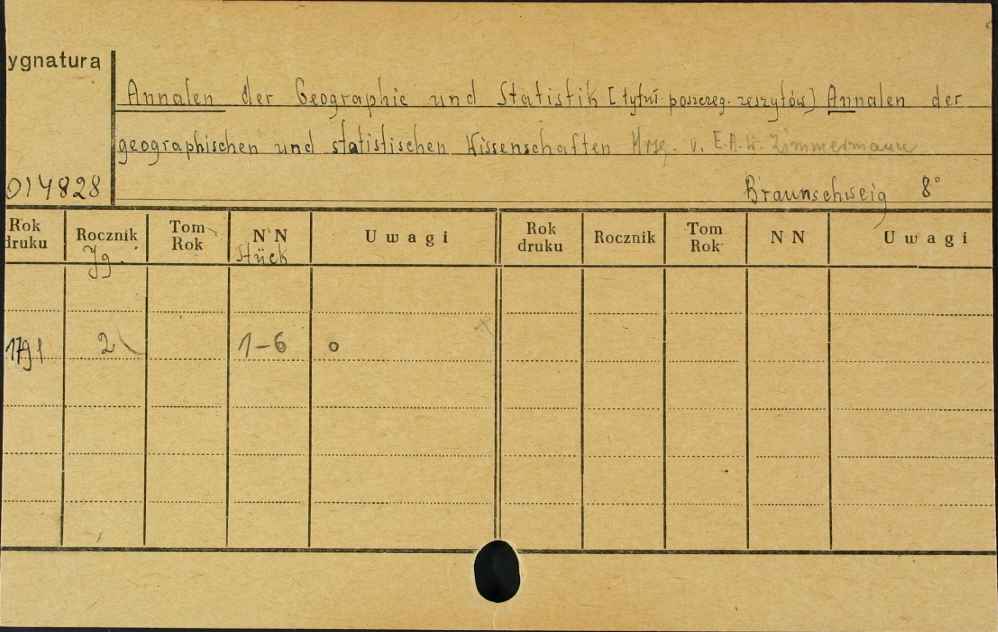 ygnatura
Annalen der Geographie und Statistik [tytuł poszczeg. zeszytów] Annalen der
geographischen und statistischen Wissenschaften Hrsg. v. E.A.W. Zimmermann
014828 Braunschweig 8°
Rok druku Rocznik Tom Rok N N U w a g i Rok druku Rocznik Tom Rok N N U w a g i
Jg. Stück
1791 2 1-6 o